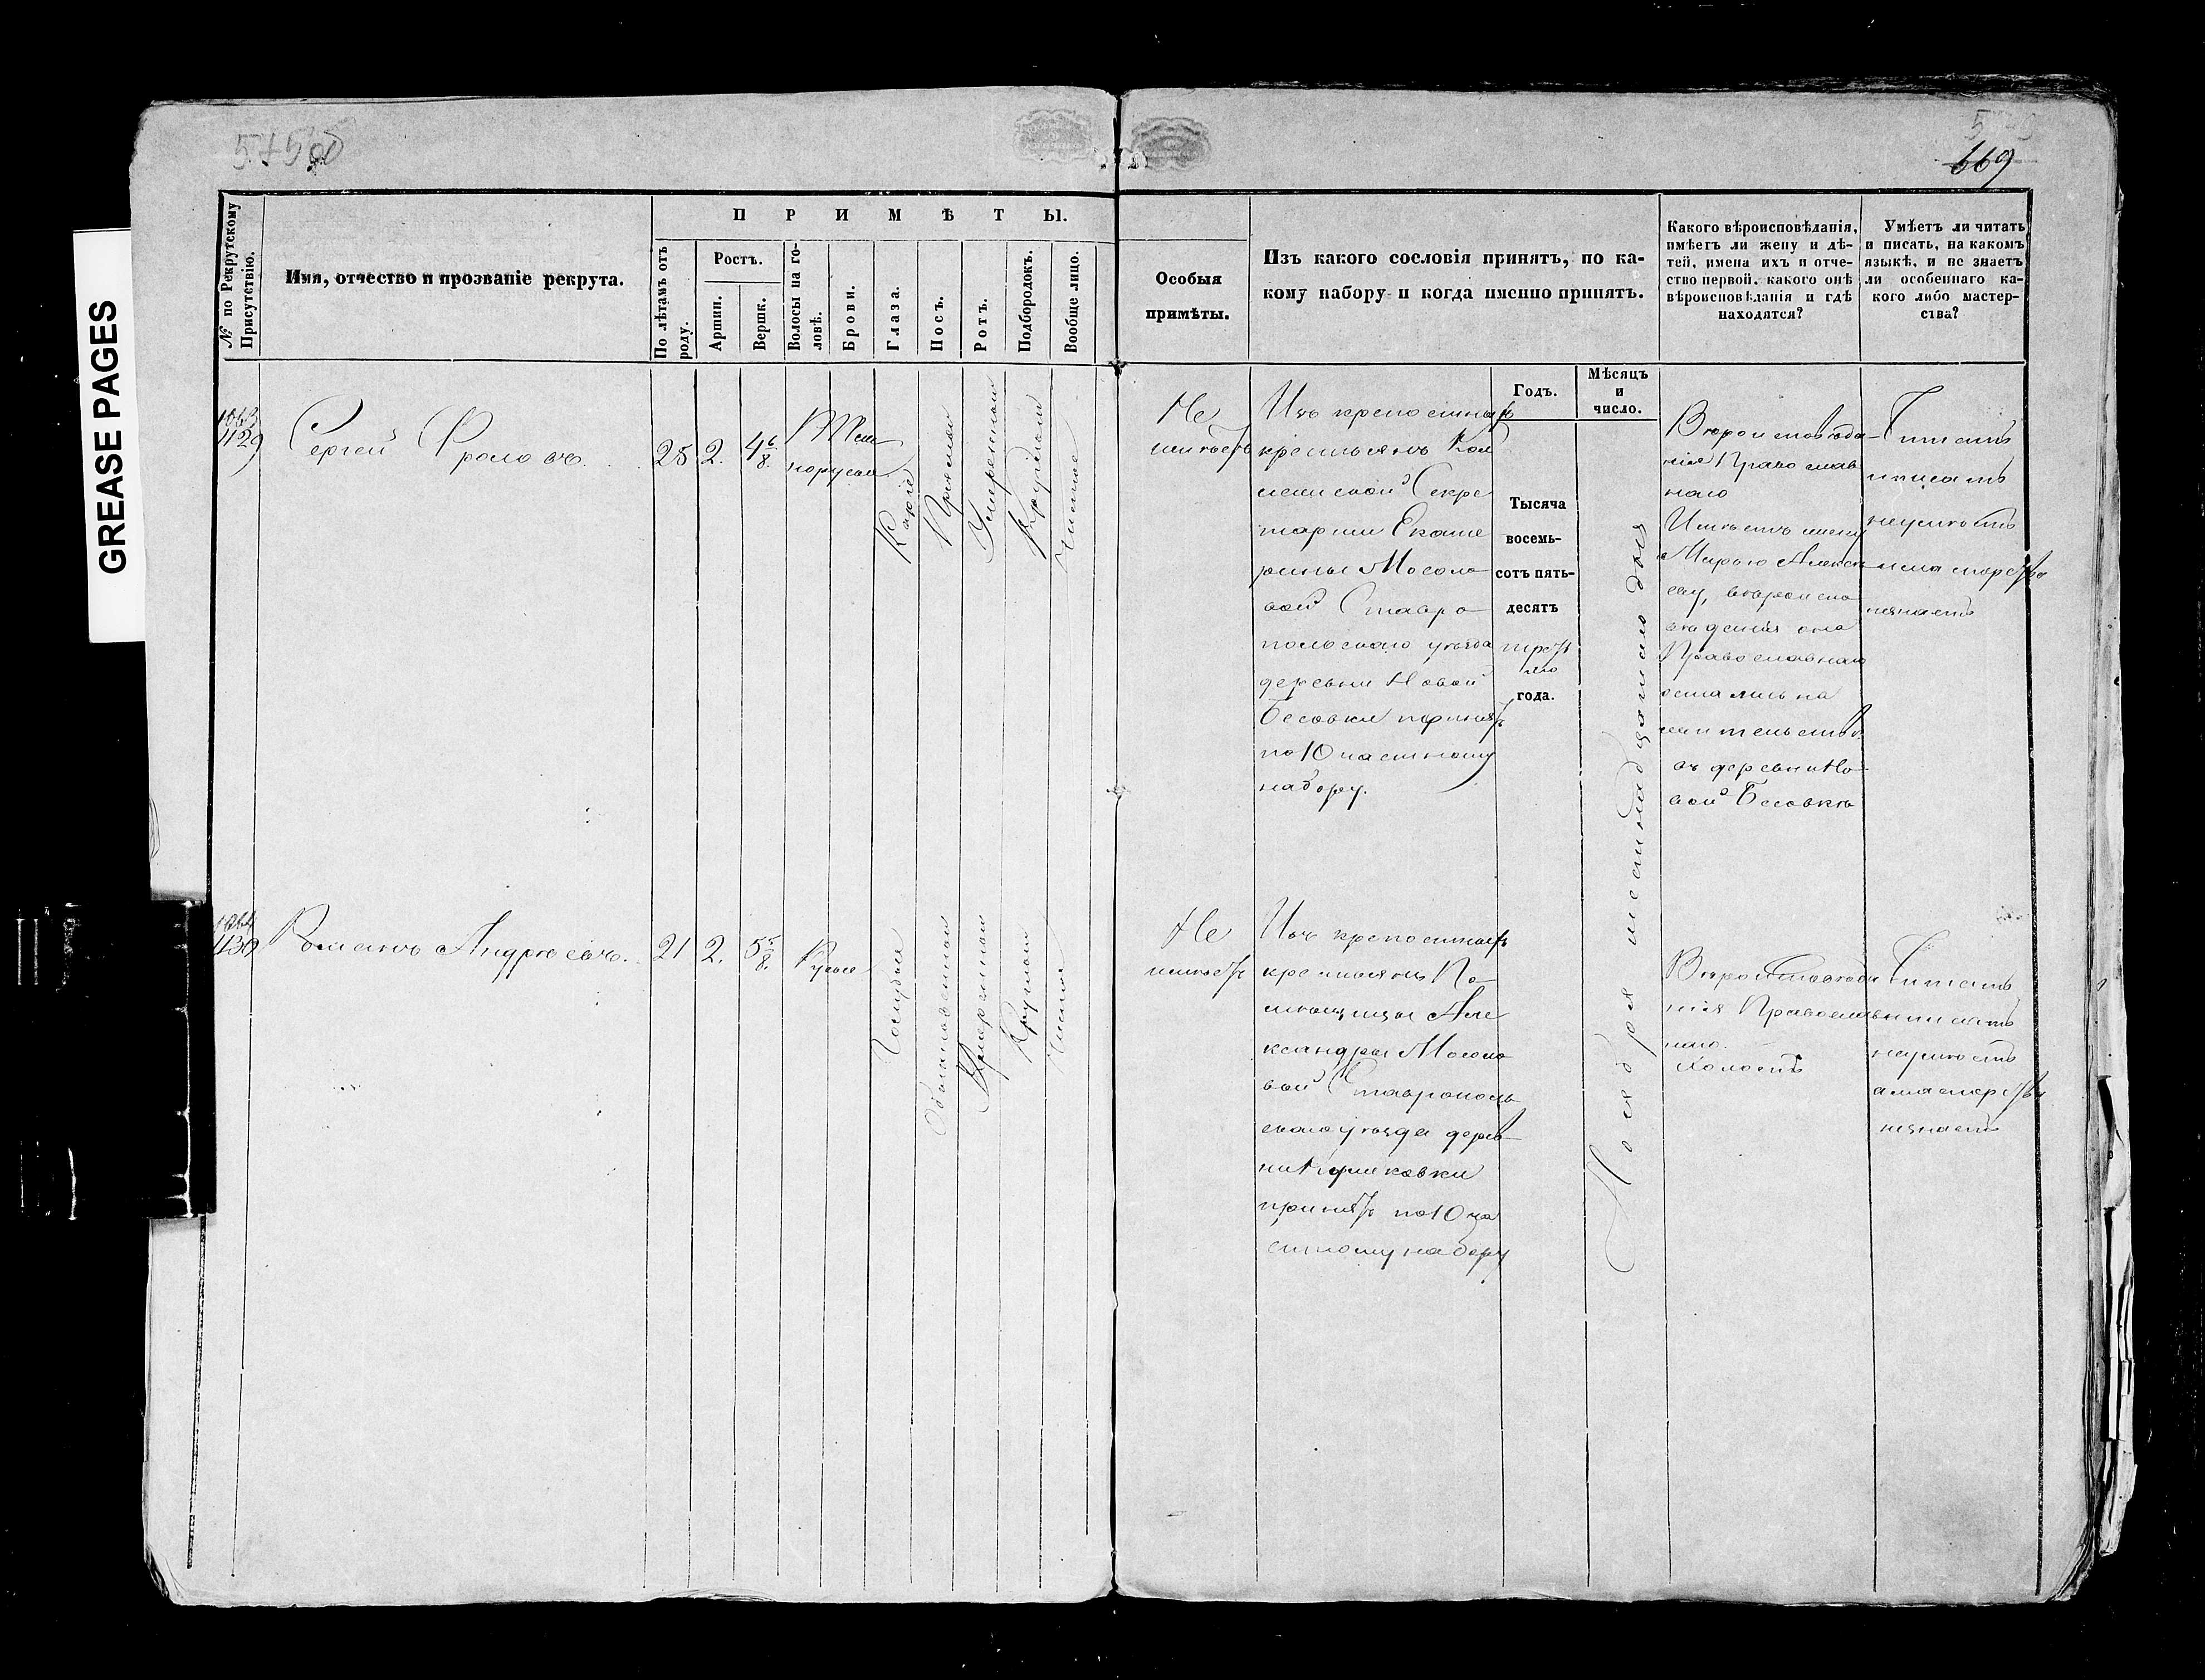 GREASE PAGES
669
№ по Рекрутскому Присутствію.
Имя, отчество и прозваніе рекрута.
ПРИМѢТЫ.
По лѣтамъ отъ роду.
Ростъ.
Аршин.
Вершк.
Волосы на головѣ.
Брови.
Глаза.
Носъ.
Ротъ.
Подбородокъ.
Вообще лицо.
Особыя
примѣты.
Изъ какого сословія принятъ, по ка-
кому набору и когда именно принятъ.
Какого вѣроисповѣданія,
имѣетъ ли жену и дѣ-
тей, имена ихъ и отче-
ство первой, какого онѣ
вѣроисповѣданія и гдѣ
находятся?
Умѣетъ ли читать
и писать, на какомъ
языкѣ, и не знаетъ
ли особеннаго ка-
кого либо мастер-
ства?
Годъ.
Мѣсяцъ
и
число.
1063
1129
Сергей Фроловъ.
25
2.
4 6/8.
Темнорусые
Карие
Прямой
Умеренной
Круглой
Чистое
Не
имеетъ
Изъ крепостныхъ
крестьянъ Кол
лежской Секре
тарши Екате
рины Мосоло
вой Ставро
польскаго уѣзда
деревни Новой
Бесовки принятъ
по 10 частному
набору.
Тысяча
восемь-
сотъ пять-
десятъ
треть
яго
года.
Ноября шестнадцатаго дня
Вѣроисповѣда
нія Православ
наго
Имѣетъ жену
Марью Алексѣ
еву, вѣроиспо
вѣденія она
Православнаго
остались на
жительствѣ
въ деревни Но
вой Бесовкѣ
Читать
писать
неумѣетъ
и мастерства
незнаетъ
1064
1130
Романъ Андреевъ.
21
2.
5 5/8.
Русые
Голубые
Обыкновенной
Умеренной
Круглой
Чистое
Не
имѣетъ
Изъ крепостныхъ
крестьянъ По
мѣщицы Але
ксандры Мосоло
вой Ставрополь
скаго уѣзда дерев
ни
принятъ по 10 ча
стному набору
Вѣроисповѣда
нія Православ
наго.
Холостъ
Читать
и писать
неумѣетъ
а мастерства
незнаетъ